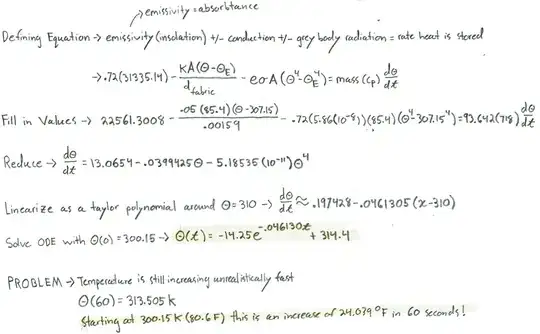 emissivity = absorbtance
Defining Equation → emissivity (insolation) +/- conduction +/- grey body radiation = rate heat is stored
→ .72(31335.14) - KA(Θ-Θ_E)/d_fabric - eσA(Θ⁴-Θ_E⁴) = mass(Cp) dΘ/dt
Fill in Values → 22561.3008 - .05(85.4)(Θ-307.15)/.00159 - .72(5.86(10⁻⁸))(85.4)(Θ⁴-307.15⁴) = 93.642(718) dΘ/dt
Reduce → dΘ/dt = 13.0654 - .0399425Θ - 5.18535(10⁻¹¹)Θ⁴
Linearize as a taylor polynomial around Θ=310 → dΘ/dt ≈ .197428 - .0461305(x-310)
Solve ODE with Θ(0)=300.15 → Θ(t) = -14.25e^-.046130t + 314.4
PROBLEM → Temperature is still increasing unrealistically fast
Θ(60) = 313.505 K
Starting at 300.15K (80.6 F) this is an increase of 24.079 °F in 60 seconds!